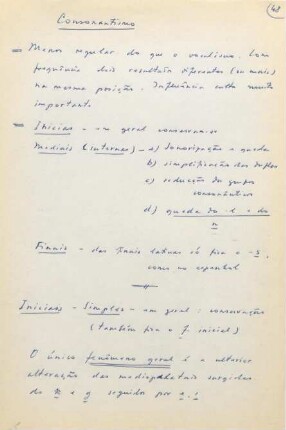 48
Consonantismo
Menos regular do que o vocalismo. Com
frequência dois resultados diferentes (ou mais)
na mesma posição. Influência culta muito
importante
Iniciais - em geral conservam-se
Mediais (internas) - a) sonorização e queda
b) simplificação das duplas
c) redução de grupos
consonânticos
d) queda do -l- e do
n
Finais - das finais latinas só fica o -s,
como no espanhol
Iniciais - Simples - em geral: conservação
(também fica o f inicial)
O único fenómeno geral é a ulterior
alteração das mediopalatais surgidas
de k e g seguido por e, i